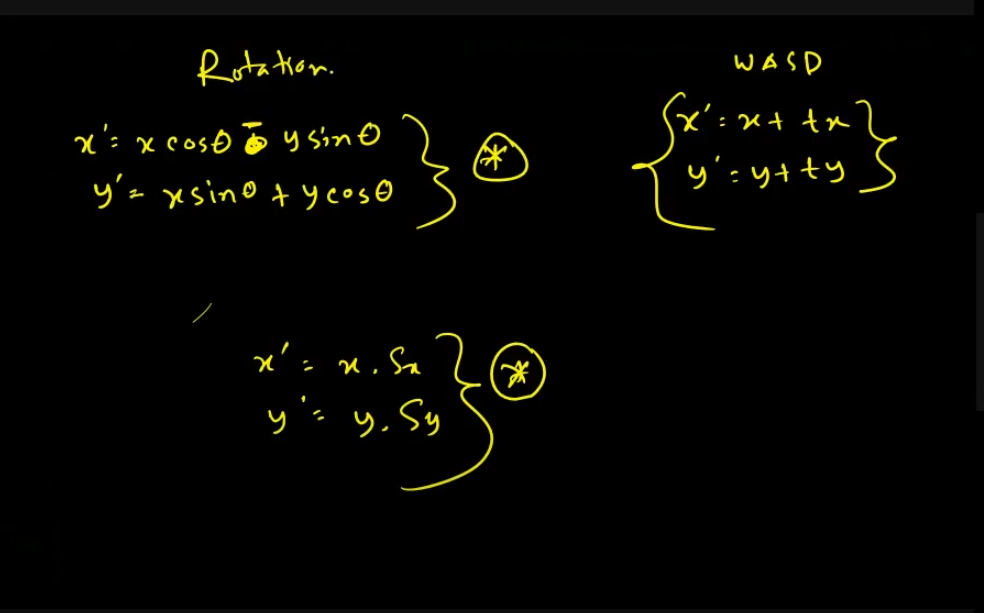 Rotation.
x' = x cosθ - y sinθ
y' = x sinθ + y cosθ
*
WASD
x' = x + tx
y' = y + ty
x' = x . Sx
y' = y . Sy
*